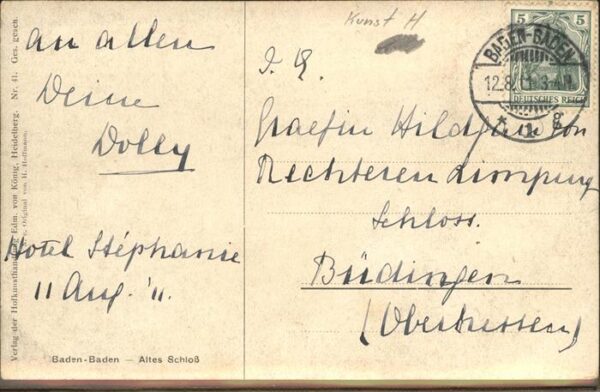 an allen
Deine
Dolly
Hotel Stéphanie
11 Aug. '11.
Baden-Baden — Altes Schloß
Verlag der Hofkunsthandlung Edm. von König, Heidelberg. Nr. 41. Ges. gesch.
Original von H. Hoffmann.
Kunst H
5 5
DEUTSCHES REICH
BADEN-BADEN
12.8.11
Graefin Hildgard von
Rechteren Limpurg
Schloss.
Büdingen
(Oberhessen)